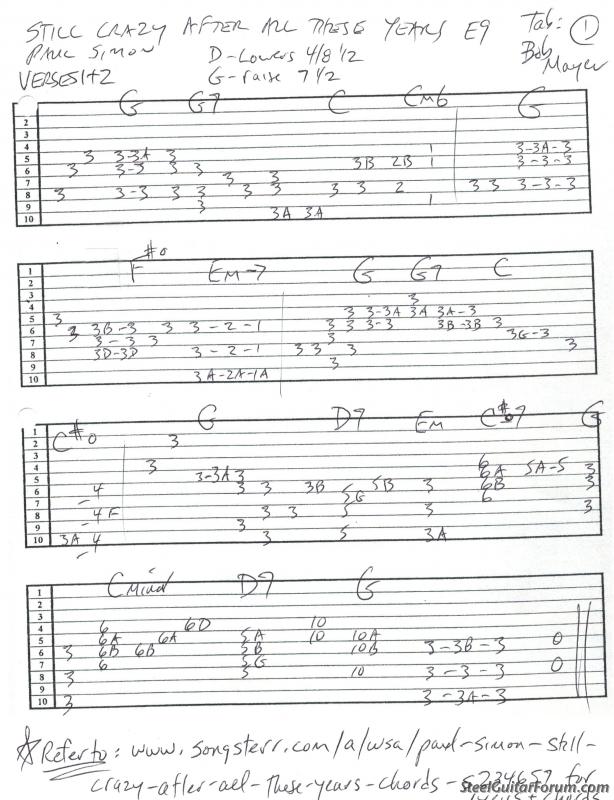 STILL CRAZY AFTER ALL THESE YEARS E9 Tab: 1
PAUL SIMON D-Lowers 4/8 1/2 Bob Mayer
VERSES 1+2 G-raise 7 1/2
G G7 C Cm6 G
2
3
4 1
5 3 3-3A 3 3-3A-3
6 3 3-3 3 3 3B 2B 1 3-3-3
7 3 3
8 3 3-3 3 3 3 3 3 3 2 3 3 3-3-3
9 3 1
10 3A 3A
F#o Em-7 G G7 C
1
2
3
4 3
5 3 3 3-3A 3A 3A-3
6 3 3B-3 3 3-2-1 3 3 3-3 3B-3B 3
7 3-3 3 3 3G-3
8 3D-3D 3-2-1 3 3 3 3
9 3
10 3A-2A-1A
C#o G D9 Em C#7 G
1
2 3
3
4 3 6
5 3-3A 3 6A 5A-5 3
6 4 3 3 3B 5 5B 3 6B 3
7 5G 6
8 4F 3 3 5 3 3
9 3
10 3A 4 3 5 3A
Cmin D9 G
1
2
3
4 6 6D 10
5 6A 6A 5A 10 10A
6 3 6B 6B 5B 10B 3-3B-3 0
7 6 5G
8 3 5 10 3-3-3 0
9
10 3 3-3A-3
Refer to: www.songsterr.com/a/wsa/paul-simon-still-
crazy-after-all-these-years-chords-s234657 for
SteelGuitarForum.com